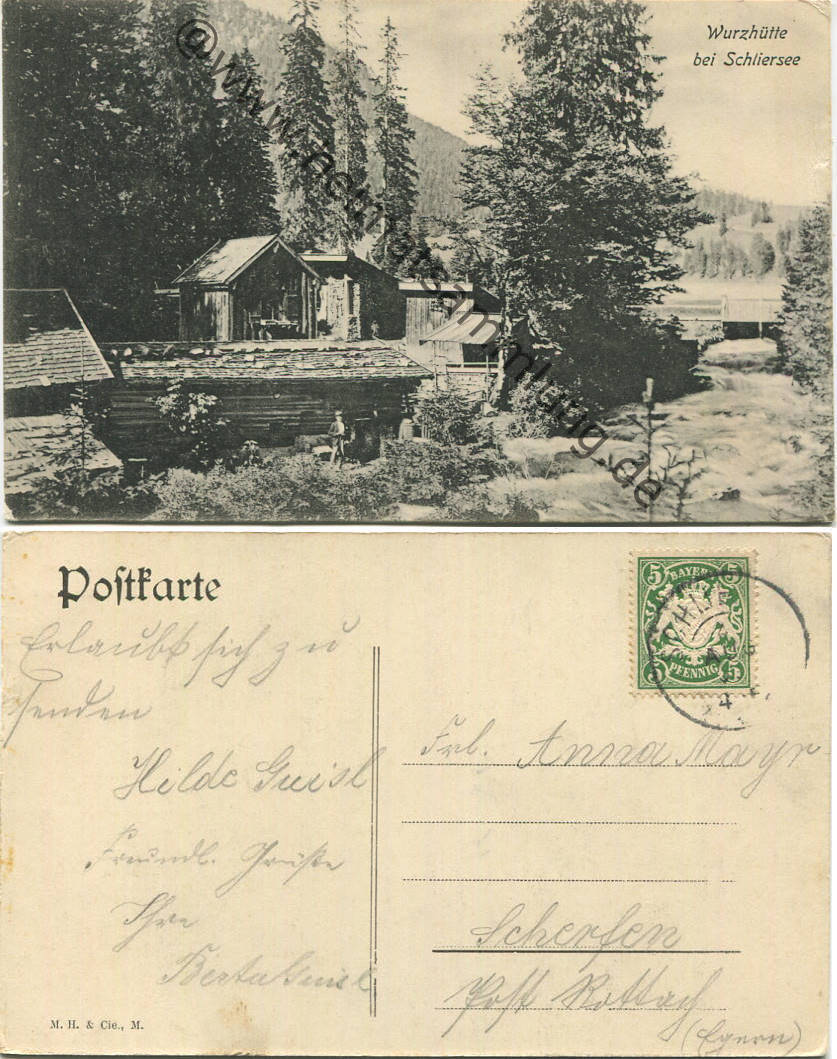 Wurzhütte
bei Schliersee
© www.heimatsammlung.de
Postkarte
BAYERN
5 5
PFENNIG
5 5
SCHLIE
Erlaubt sich zu
senden
Hilde
Freundl. Grüße
Ihre
Berta
Frl. Anna Mayr
Scherfen
Post Rottach
(Egern)
M. H. & Cie., M.